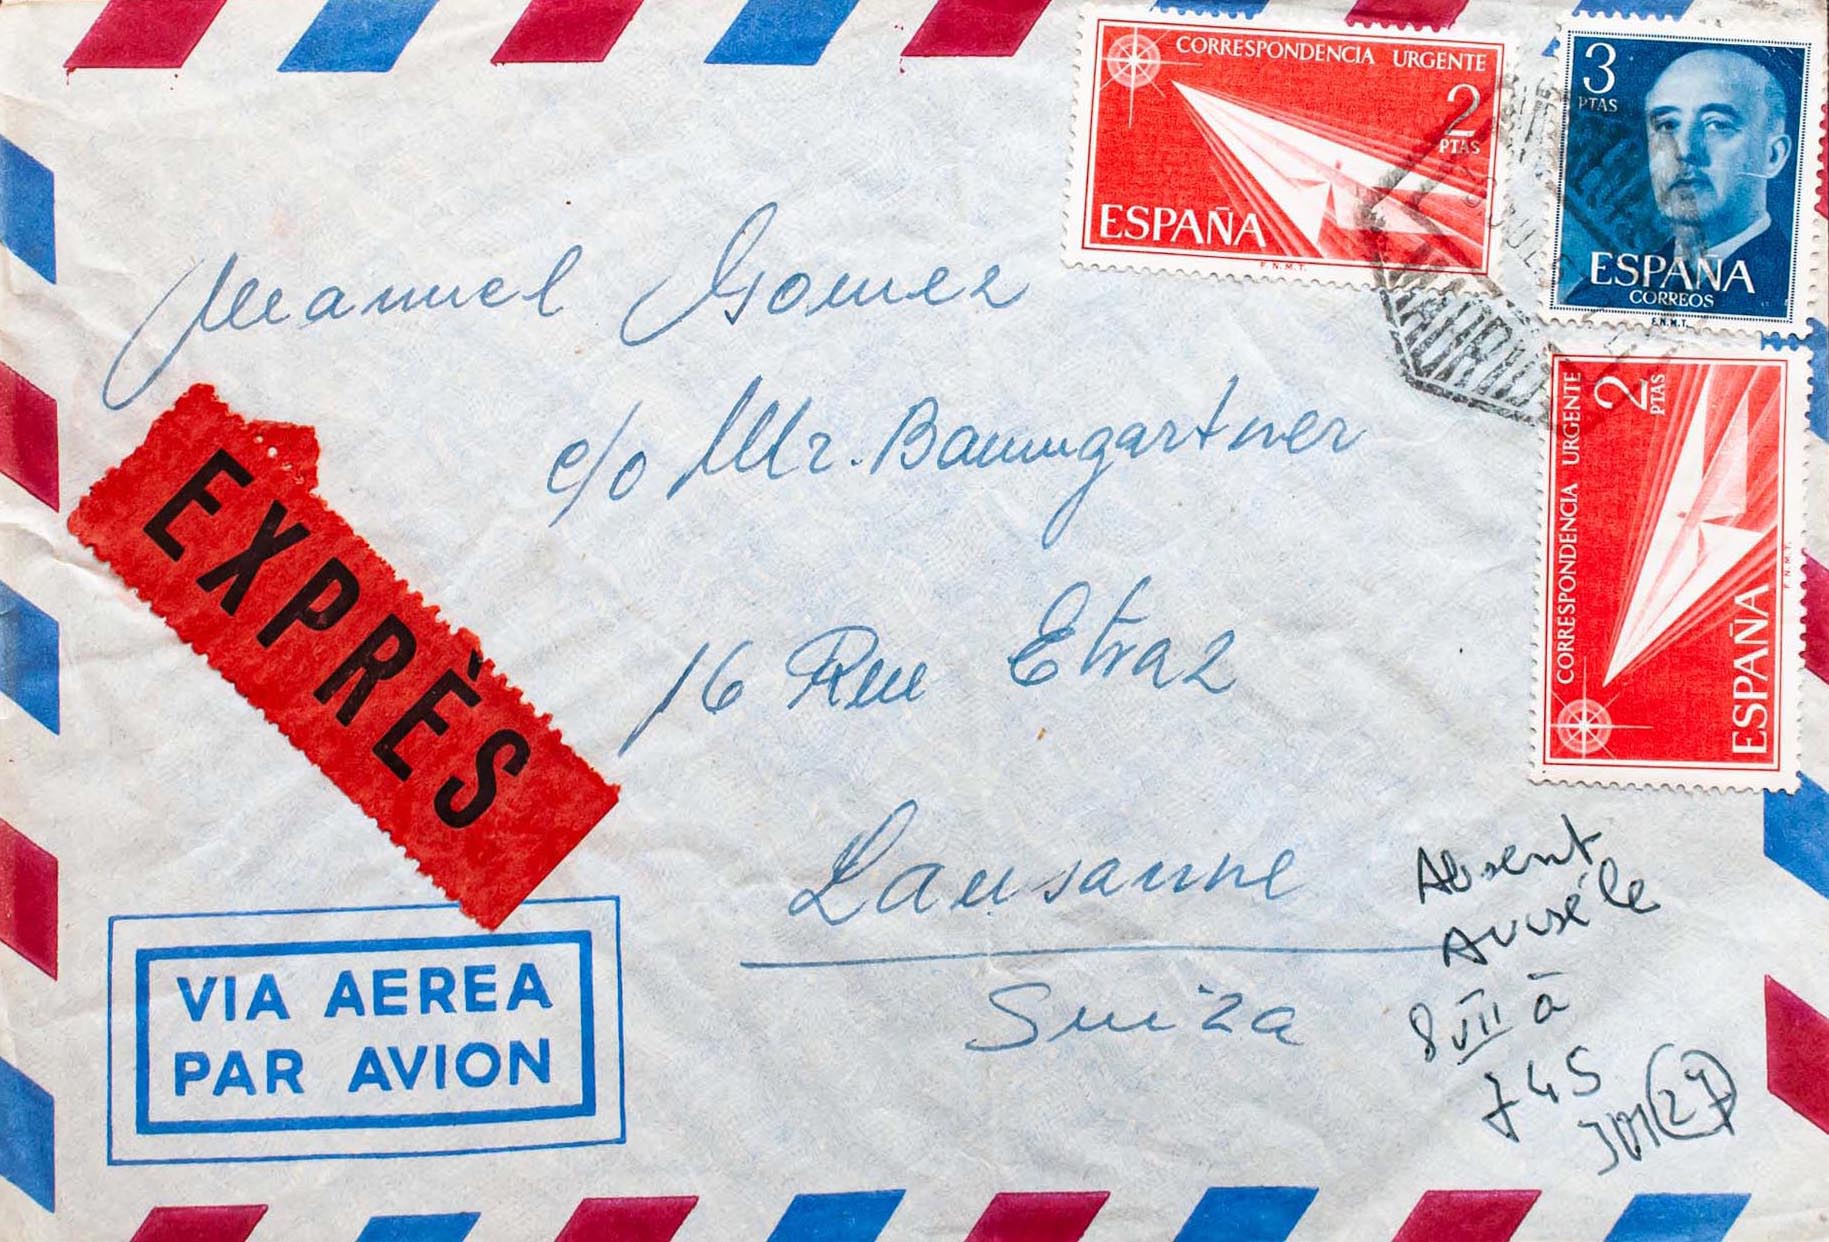 CORRESPONDENCIA URGENTE
2
PTAS
ESPAÑA
F.N.M.T.
3
PTAS
ESPAÑA
CORREOS
F.N.M.T.
MADRID
CORRESPONDENCIA URGENTE
2
PTAS
ESPAÑA
F.N.M.T.
Manuel Gomez
c/o Mr. Baumgartner
16 Rue Etraz
Lausanne
Suiza
EXPRÈS
VIA AEREA
PAR AVION
Absent
Avisé le
8 VII à
745